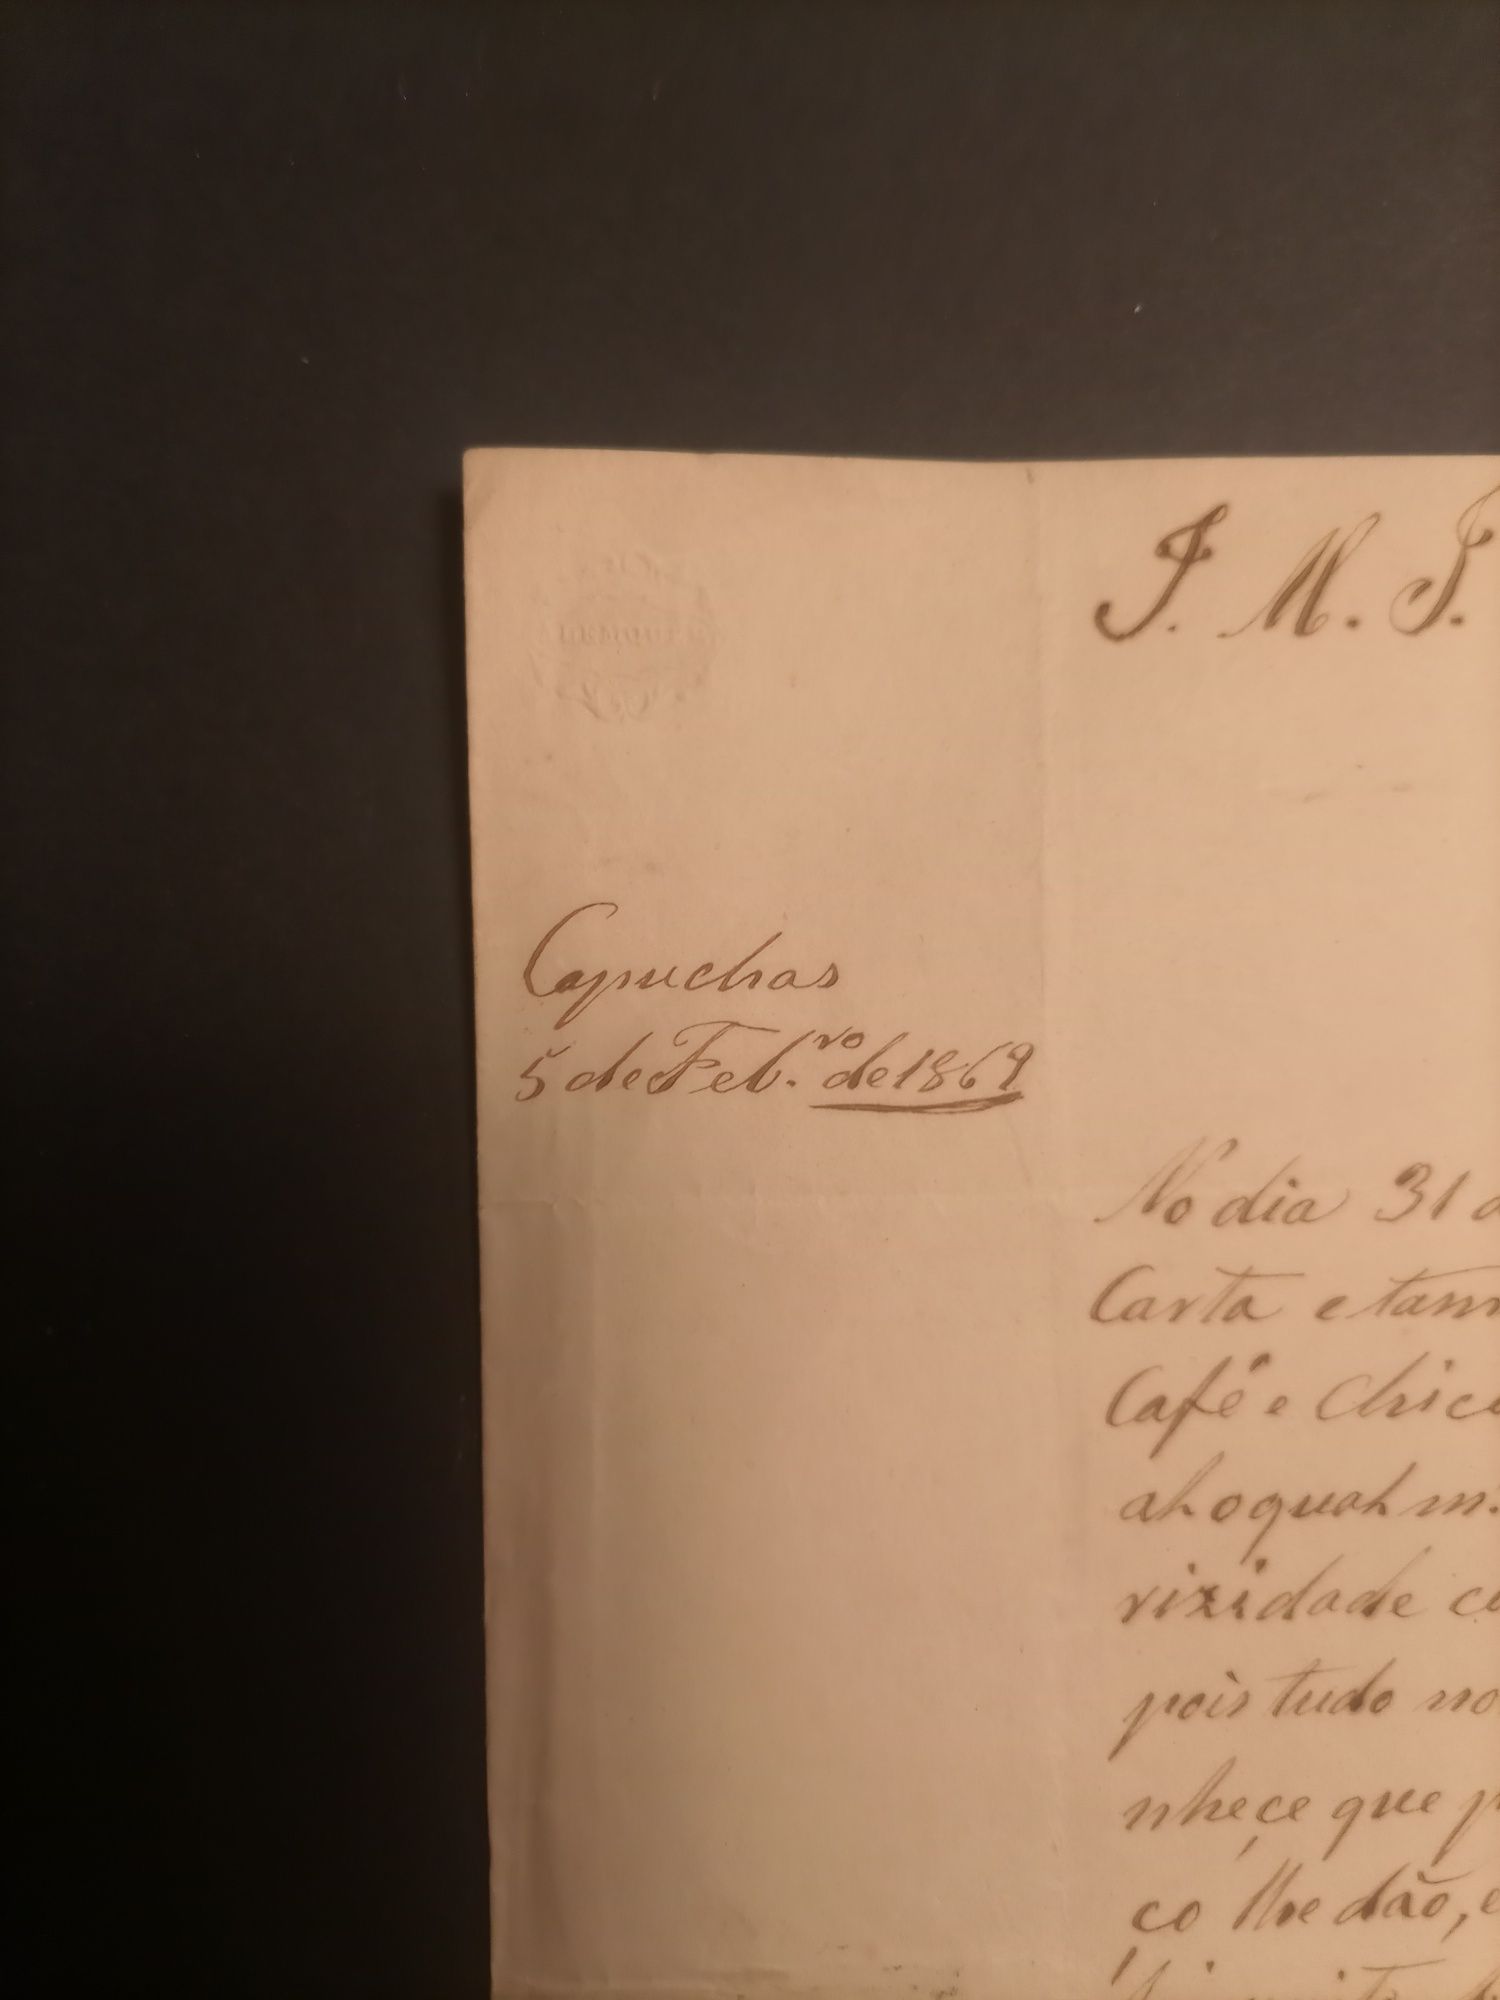 J. M. J.
Capuchas
5 de Feb.ro de 1869
No dia 31 d
Carta e tam
Café e Chico
ahoquah m.
rizidade co
pois tudo no
nheçe que p
ço lhe dão, e